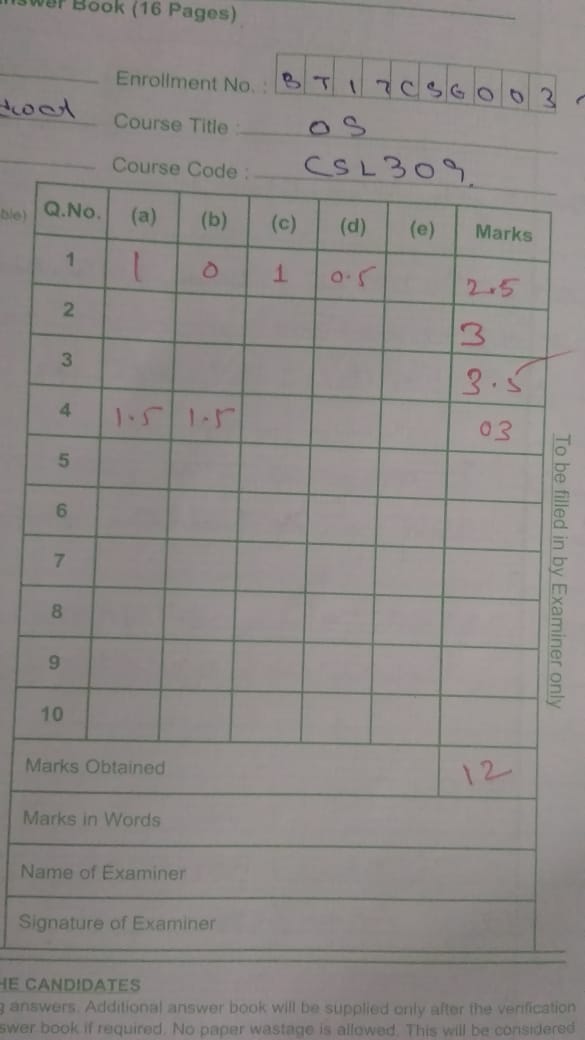 Answer Book (16 Pages)
Enrollment No. : BT17CSG003
Course Title : OS
Course Code : CSL309.
Q.No. (a) (b) (c) (d) (e) Marks
1 1 0 1 0.5 2.5
2 3
3 3.5
4 1.5 1.5 03
5
6
7
8
9
10
To be filled in by Examiner only
Marks Obtained 12
Marks in Words
Name of Examiner
Signature of Examiner
HE CANDIDATES
g answers. Additional answer book will be supplied only after the verification
swer book if required. No paper wastage is allowed. This will be considered